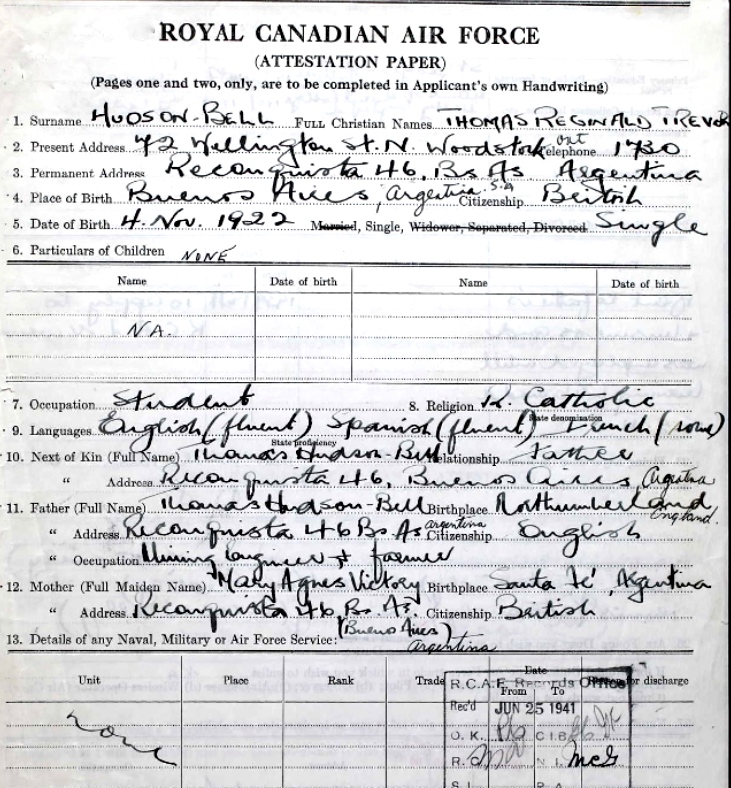 ROYAL CANADIAN AIR FORCE
(ATTESTATION PAPER)
(Pages one and two, only, are to be completed in Applicant's own Handwriting)
1. Surname HUDSON-BELL FULL Christian Names THOMAS REGINALD TREVOR
2. Present Address 42 Wellington St. N. Woodstock Ont Telephone 1730
3. Permanent Address Reconquista 46, Bs As Argentina
4. Place of Birth Buenos Aires, Argentina S.A Citizenship British
5. Date of Birth 4. Nov. 1922 Married, Single, Widower, Separated, Divorced Single
6. Particulars of Children NONE
Name Date of birth Name Date of birth
N.A.
7. Occupation Student 8. Religion R. Catholic
State denomination
9. Languages English (fluent) Spanish (fluent) French (some)
State proficiency
10. Next of Kin (Full Name) Thomas Hudson-Bell Relationship Father
" Address Reconquista 46, Buenos Aires, Argentina
11. Father (Full Name) Thomas Hudson-Bell Birthplace Northumberland England.
" Address Reconquista 46 Bs As Argentina Citizenship English
" Occupation Mining Engineer & farmer
12. Mother (Full Maiden Name) Mary Agnes Victory Birthplace Santa Fé, Argentina
" Address Reconquista 46, Bs. As. Citizenship British
(Buenos Aires)
13. Details of any Naval, Military or Air Force Service: Argentina
Unit Place Rank Trade Date for discharge
From To
none
R.C.A.F. Records Office
Rec'd JUN 25 1941
O. K. C I B
R. O. N. I. McG